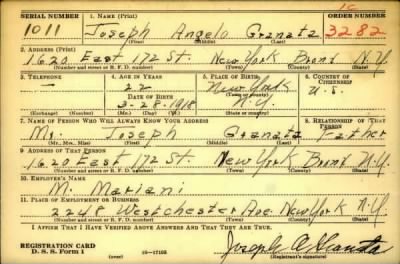 SERIAL NUMBER 1. NAME (Print) ORDER NUMBER
1011 Joseph Angelo Granata 3282
(First) (Middle) (Last)
2. ADDRESS (Print)
1620 East 172 St. New York Bronx N.Y.
(Number and street or R. F. D. number) (Town) (County) (State)
3. TELEPHONE 4. AGE IN YEARS 5. PLACE OF BIRTH 6. COUNTRY OF CITIZENSHIP
— 22 New York U.S.
DATE OF BIRTH (Town or county)
3-28-1918 N.Y.
(Exchange) (Number) (Mo.) (Day) (Yr.) (State or country)
7. NAME OF PERSON WHO WILL ALWAYS KNOW YOUR ADDRESS 8. RELATIONSHIP OF THAT PERSON
Mr. Joseph Granata Father
(Mr., Mrs., Miss) (First) (Middle) (Last)
9. ADDRESS OF THAT PERSON
1620 East 172 St. New York Bronx N.Y.
(Number and street or R. F. D. number) (Town) (County) (State)
10. EMPLOYER'S NAME
M. Mariani
11. PLACE OF EMPLOYMENT OR BUSINESS
2248 Westchester Ave New York N.Y.
(Number and street or R. F. D. number) (Town) (County) (State)
I AFFIRM THAT I HAVE VERIFIED ABOVE ANSWERS AND THAT THEY ARE TRUE.
REGISTRATION CARD
D. S. S. Form 1 (over) 16—17105 (Registrant's signature)
Joseph A Granata